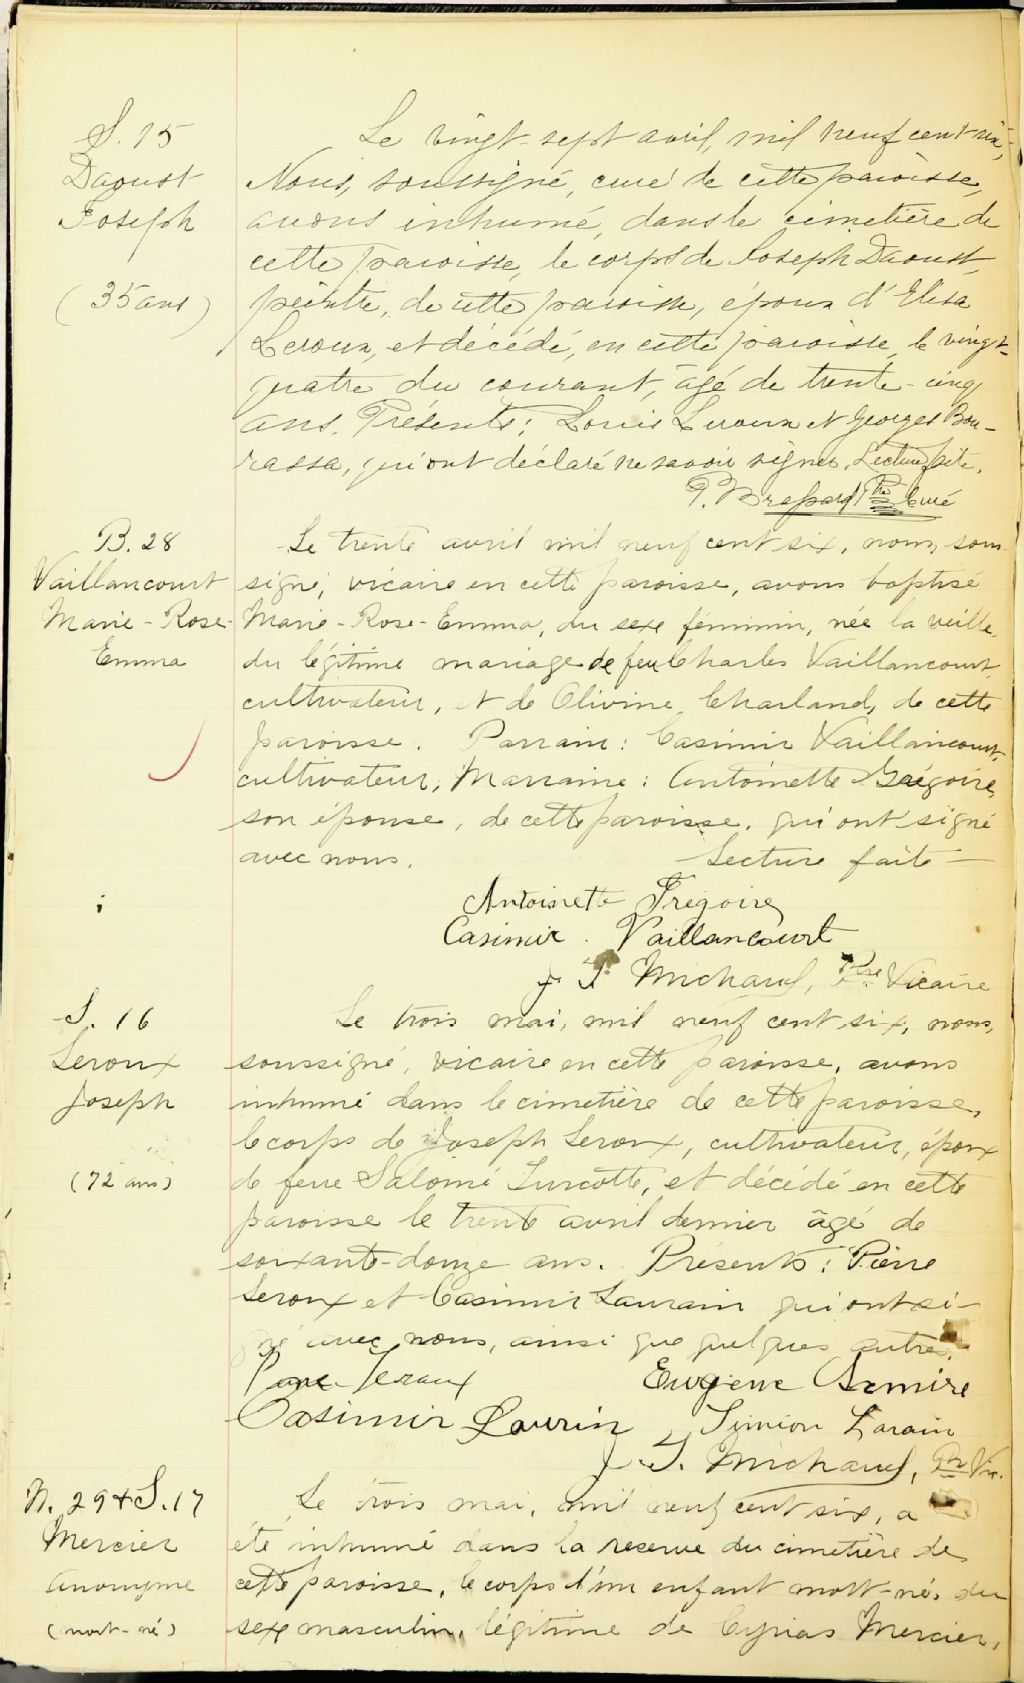 S. 15
Daoust
Joseph
(35 ans)
Le vingt-sept avril, mil neuf cent six,
Nous, soussigné, curé de cette paroisse,
avons inhumé, dans le cimetière de
cette paroisse, le corps de Joseph Daoust,
peintre, de cette paroisse, époux d'Elisa
Leroux, et décédé, en cette paroisse, le vingt-
quatre du courant, âgé de trente-cinq
ans. Présents: Louis Leroux et Georges Bou-
rassa, qui ont déclaré ne savoir signer. Lecture faite.
Ptre Curé
B. 28
Vaillancourt
Marie-Rose-
Emma
Le trente avril mil neuf cent six, nous, sous
signé, vicaire en cette paroisse, avons baptisé
Marie-Rose-Emma, du sexe féminin, née la veille,
du légitime mariage de feu Charles Vaillancourt,
cultivateur, et de Olivine Charland, de cette
paroisse. Parrain: Casimir Vaillancourt,
cultivateur, Marraine: Antoinette Grégoire,
son épouse, de cette paroisse. qui ont signé
avec nous. Lecture faite —
Antoinette Grégoire
Casimir . Vaillancourt
J T. Michaud, Ptre Vicaire
S. 16
Leroux
Joseph
(72 ans)
Le trois mai, mil neuf cent six, nous,
soussigné, vicaire en cette paroisse, avons
inhumé dans le cimetière de cette paroisse,
le corps de Joseph Leroux, cultivateur, époux
de feue Salomé Turcotte, et décédé en cette
paroisse le trente avril dernier âgé de
soixante-douze ans. Présents: Pierre
Leroux et Casimir Laurain qui ont si-
gné avec nous, ainsi que quelques autres.
Leroux Eugène
Casimir Laurin Simion Larain
J. T. Michaud, Ptr Vic.
N. 29 & S. 17
Mercier
Anonyme
(mort-né)
Le trois mai, mil neuf cent six, a
été inhumé dans la reserve du cimetière de
cette paroisse, le corps d'un enfant mort-né, du
sexe masculin, légitime de Cyrias Mercier,